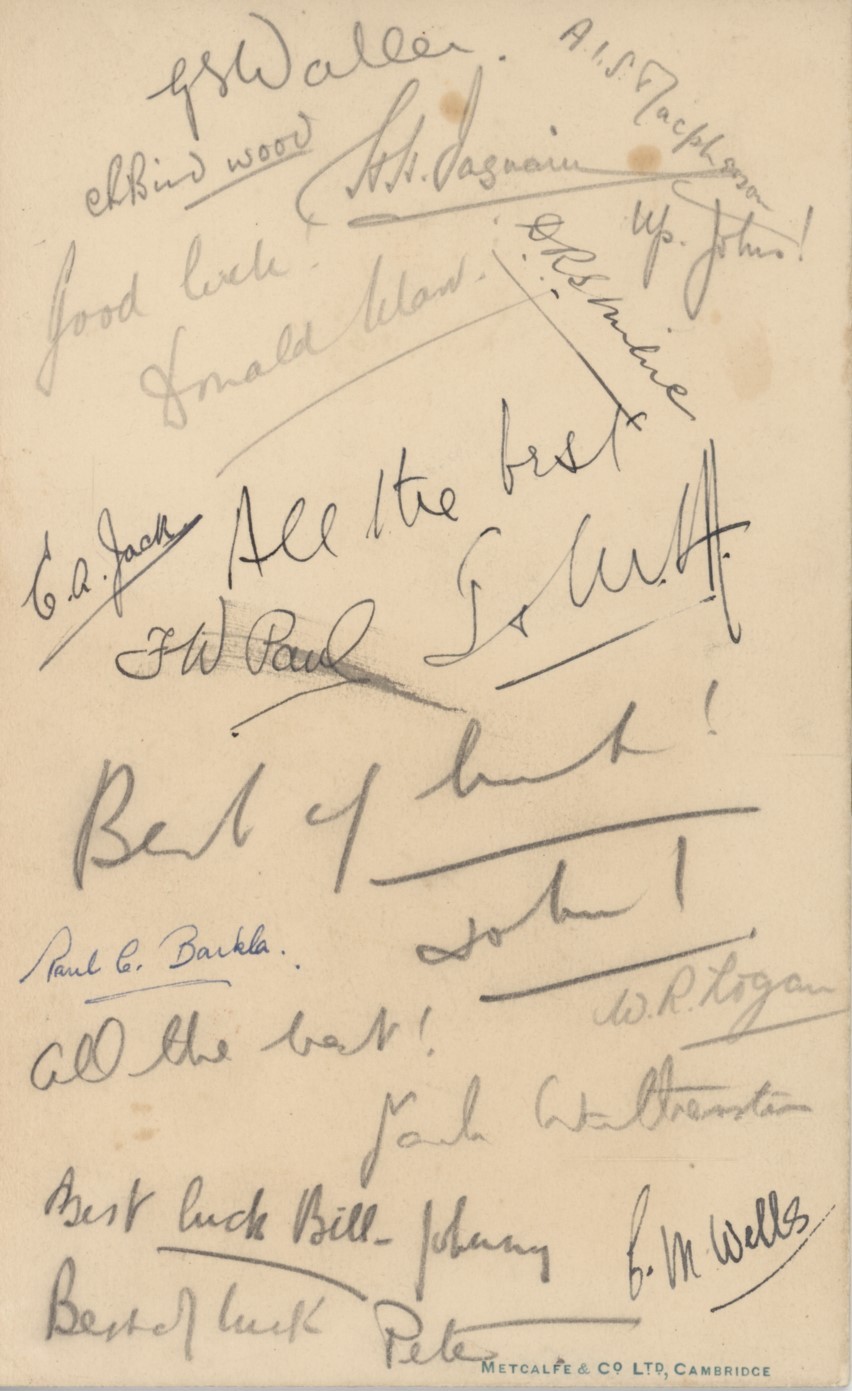 GS Waller.
A.I.S. Macpherson
C R Bird wood
H.H.
Up. Johns!
Good luck!
Donald
D R S Milne
All the best
C.A. Jack
F W Paul
Best of luck!
John!
Paul C. Barkla.
W.R. Logan
All the best!
Jack
Best luck Bill - Johnny
C. M. Wells
Best of luck Peter
METCALFE & CO LTD, CAMBRIDGE